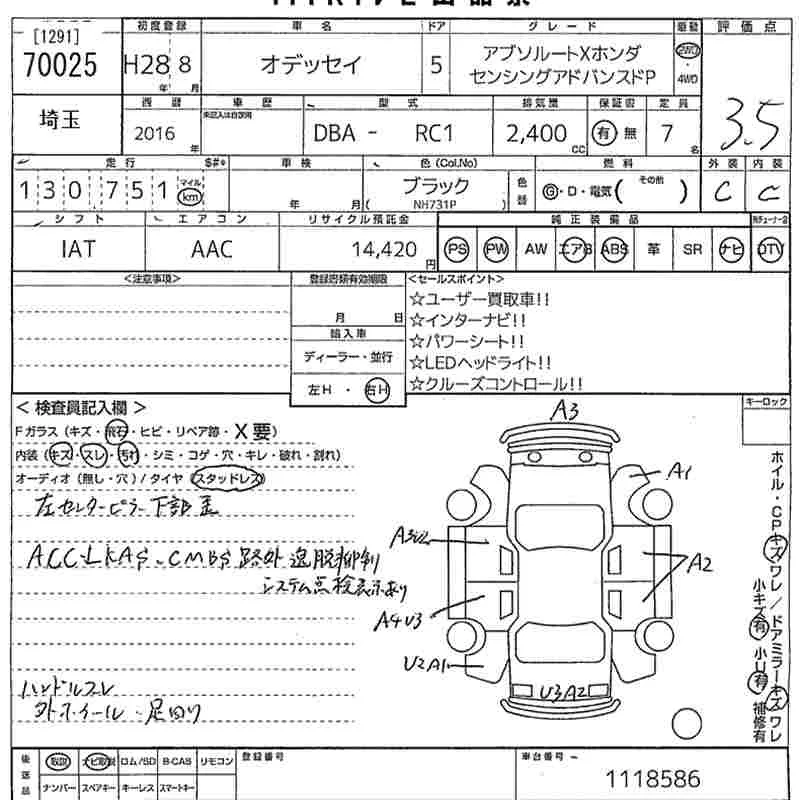 [1291]
70025
初度登録
車名
ドア
グレード
駆動
評価点
H28 8
年 月
オデッセイ
5
アブソルートXホンダ
センシングアドバンスドP
2WD
・
4WD
3.5
埼玉
西暦
車歴
型式
排気量
保証書
定員
未記入は自家用
2016
年
DBA - RC1
2,400
CC
有 無
7
名
走行
車検
色(Col.No)
燃料
外装
内装
130751
マイル
km
年 月
ブラック
NH731P
色替
G・D・電気( その他 )
C
C
シフト
エアコン
リサイクル預託金
純正装備品
IAT
AAC
14,420
円
PS PW AW エアB ABS 革 SR ナビ DTV
<注意事項>
登録書類有効期限
月 日
輸入車
ディーラー・並行
左H ・ 右H
<セールスポイント>
☆ユーザー買取車!!
☆インターナビ!!
☆パワーシート!!
☆LEDヘッドライト!!
☆クルーズコントロール!!
キーロック
< 検査員記入欄 >
Fガラス (キズ・飛石・ヒビ・リペア跡・X要)
内装 (キズ・スレ・汚れ・シミ・コゲ・穴・キレ・破れ・割れ)
オーディオ (無し・穴) / タイヤ (スタッドレス)
左センターピラー下部歪
ACC・LKAS・CMBS 路外逸脱抑制
システム点検表示あり
ハンドルスレ
外ホイール・足回り
A3
A1
A2
A4 U3
U2 A1
U3 A2
ホイル・CPキズワレ/ドアミラーキズワレ
小キズ有 小U有 補修有
後送品
取説 ナビ取説 ロム/SD B-CAS リモコン
ナンバー スペアキー キーレス スマートキー
登録番号
車台番号
1118586